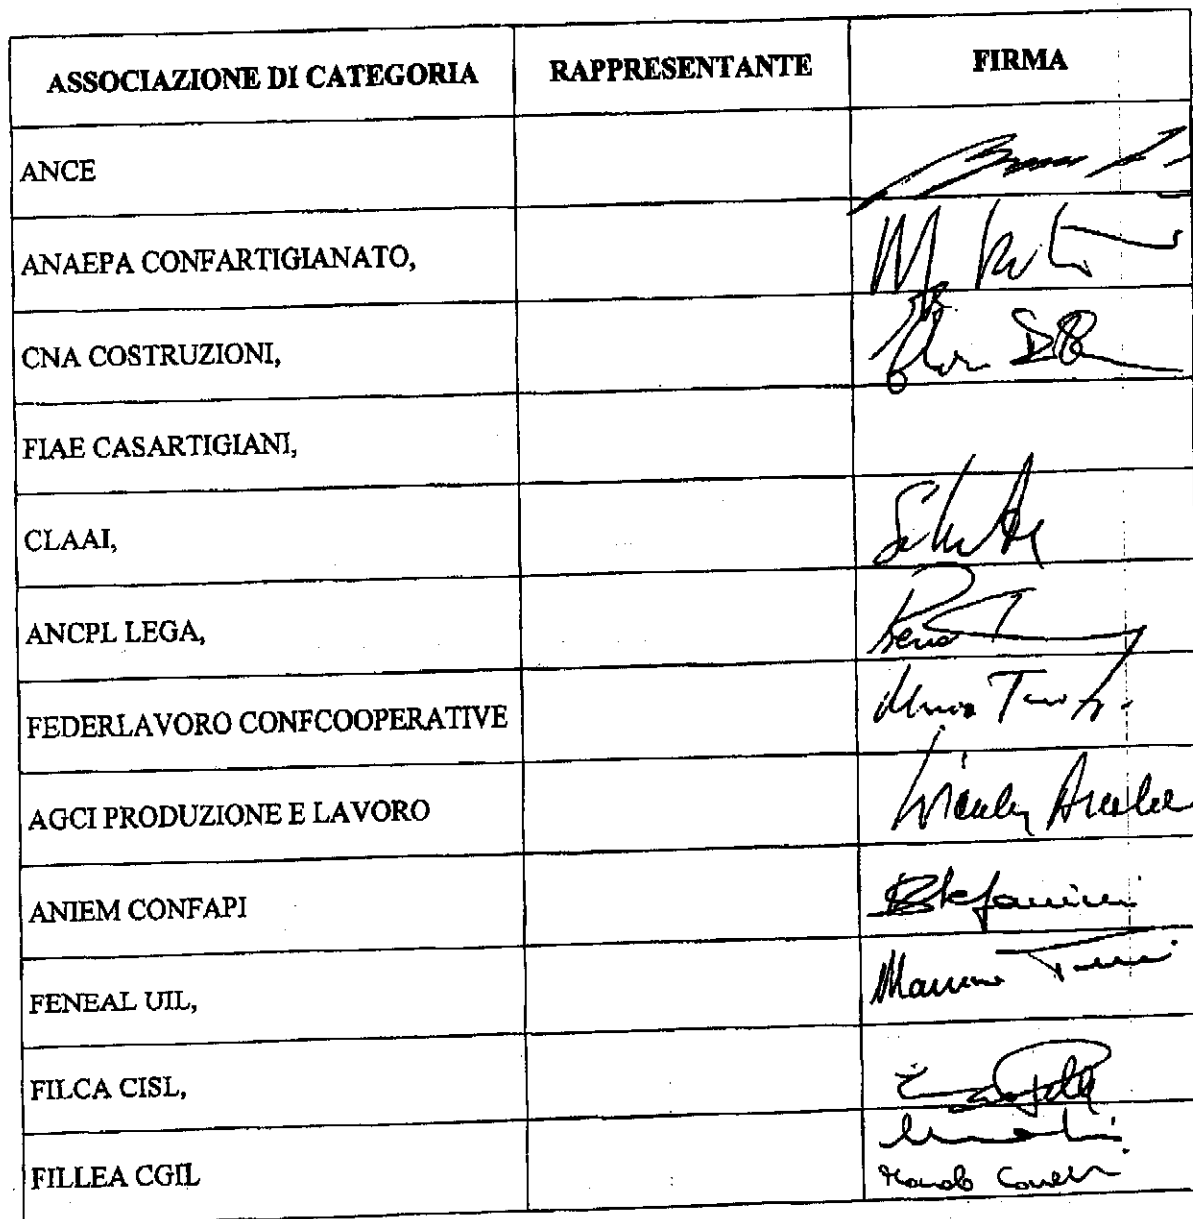 ASSOCIAZIONE DI CATEGORIA RAPPRESENTANTE FIRMA
ANCE
ANAEPA CONFARTIGIANATO,
CNA COSTRUZIONI,
FIAE CASARTIGIANI,
CLAAI,
ANCPL LEGA,
FEDERLAVORO CONFCOOPERATIVE
AGCI PRODUZIONE E LAVORO
ANIEM CONFAPI Stefanini
FENEAL UIL,
FILCA CISL,
FILLEA CGIL